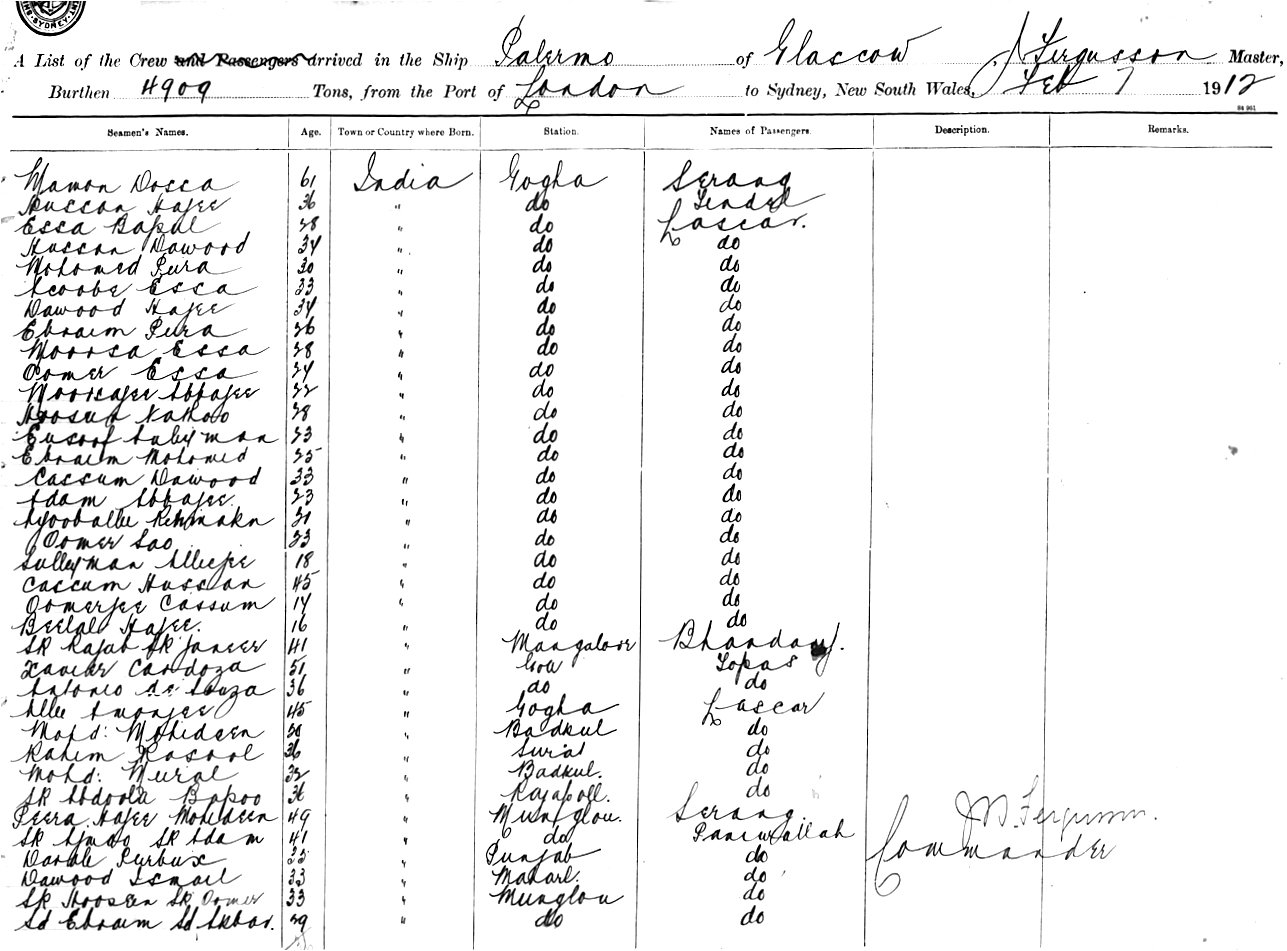 SYDNEY
A List of the Crew and Passengers arrived in the Ship Palermo of Glascow J Fergusson Master,
Burthen 4909 Tons, from the Port of London to Sydney, New South Wales, Feb 7 1912
84 951
Seamen's Names. Age. Town or Country where Born. Station. Names of Passengers. Description. Remarks.
Mamon Dosca 61 India Gogha Serang
Hussan Hajee 36 " do Tendel
Essa Bapul 28 " do Lascar.
Hussan Dawood 34 " do do
Mohomed Pira 30 " do do
Acoobe Essa 33 " do do
Dawood Hajee 34 " do do
Ebraim Pira 26 " do do
Moossa Essa 28 " do do
Oomer Essa 24 " do do
Abbajee 22 " do do
28 " do do
Eusoof Suleyman 23 " do do
Ebraim Mohomed 25 " do do
Cassum Dawood 33 " do do
Adam Abbajee. 23 " do do
" do do
Oomer Sao 23 " do do
Sulleyman Alleejee 18 " do do
Cassum Hussan 45 " do do
Oomerjee Cassum 14 " do do
Beelal Hajee. 16 " do do
Sk Rajab Sk Janeer 41 " Mangalore Bhandary.
Xavier Cardoza 51 " Goa Topas
Antonio de Souza 36 " do do
Allee Amonjee 45 " Gogha Lascar
Mohd: Mohideen 50 " Badkul do
Rahim Rasool 36 " Surat do
Mohd: Mural 32 " Badkul. do
Sk Abdoola Bapoo 36 " Rajapoll. do
Peera Hajee Mohideen 49 " Munglou. Serang. J M. Ferguson.
Sk Ahmed Sk Adam 41 " do Paniwallah
Purbux " Punjab do Commander
Dawood Ismail 33 " do
Sk Hooseen Sk Oomer 33 " Munglou do
Sd Ebraim Sd Akbar. 29 " do do